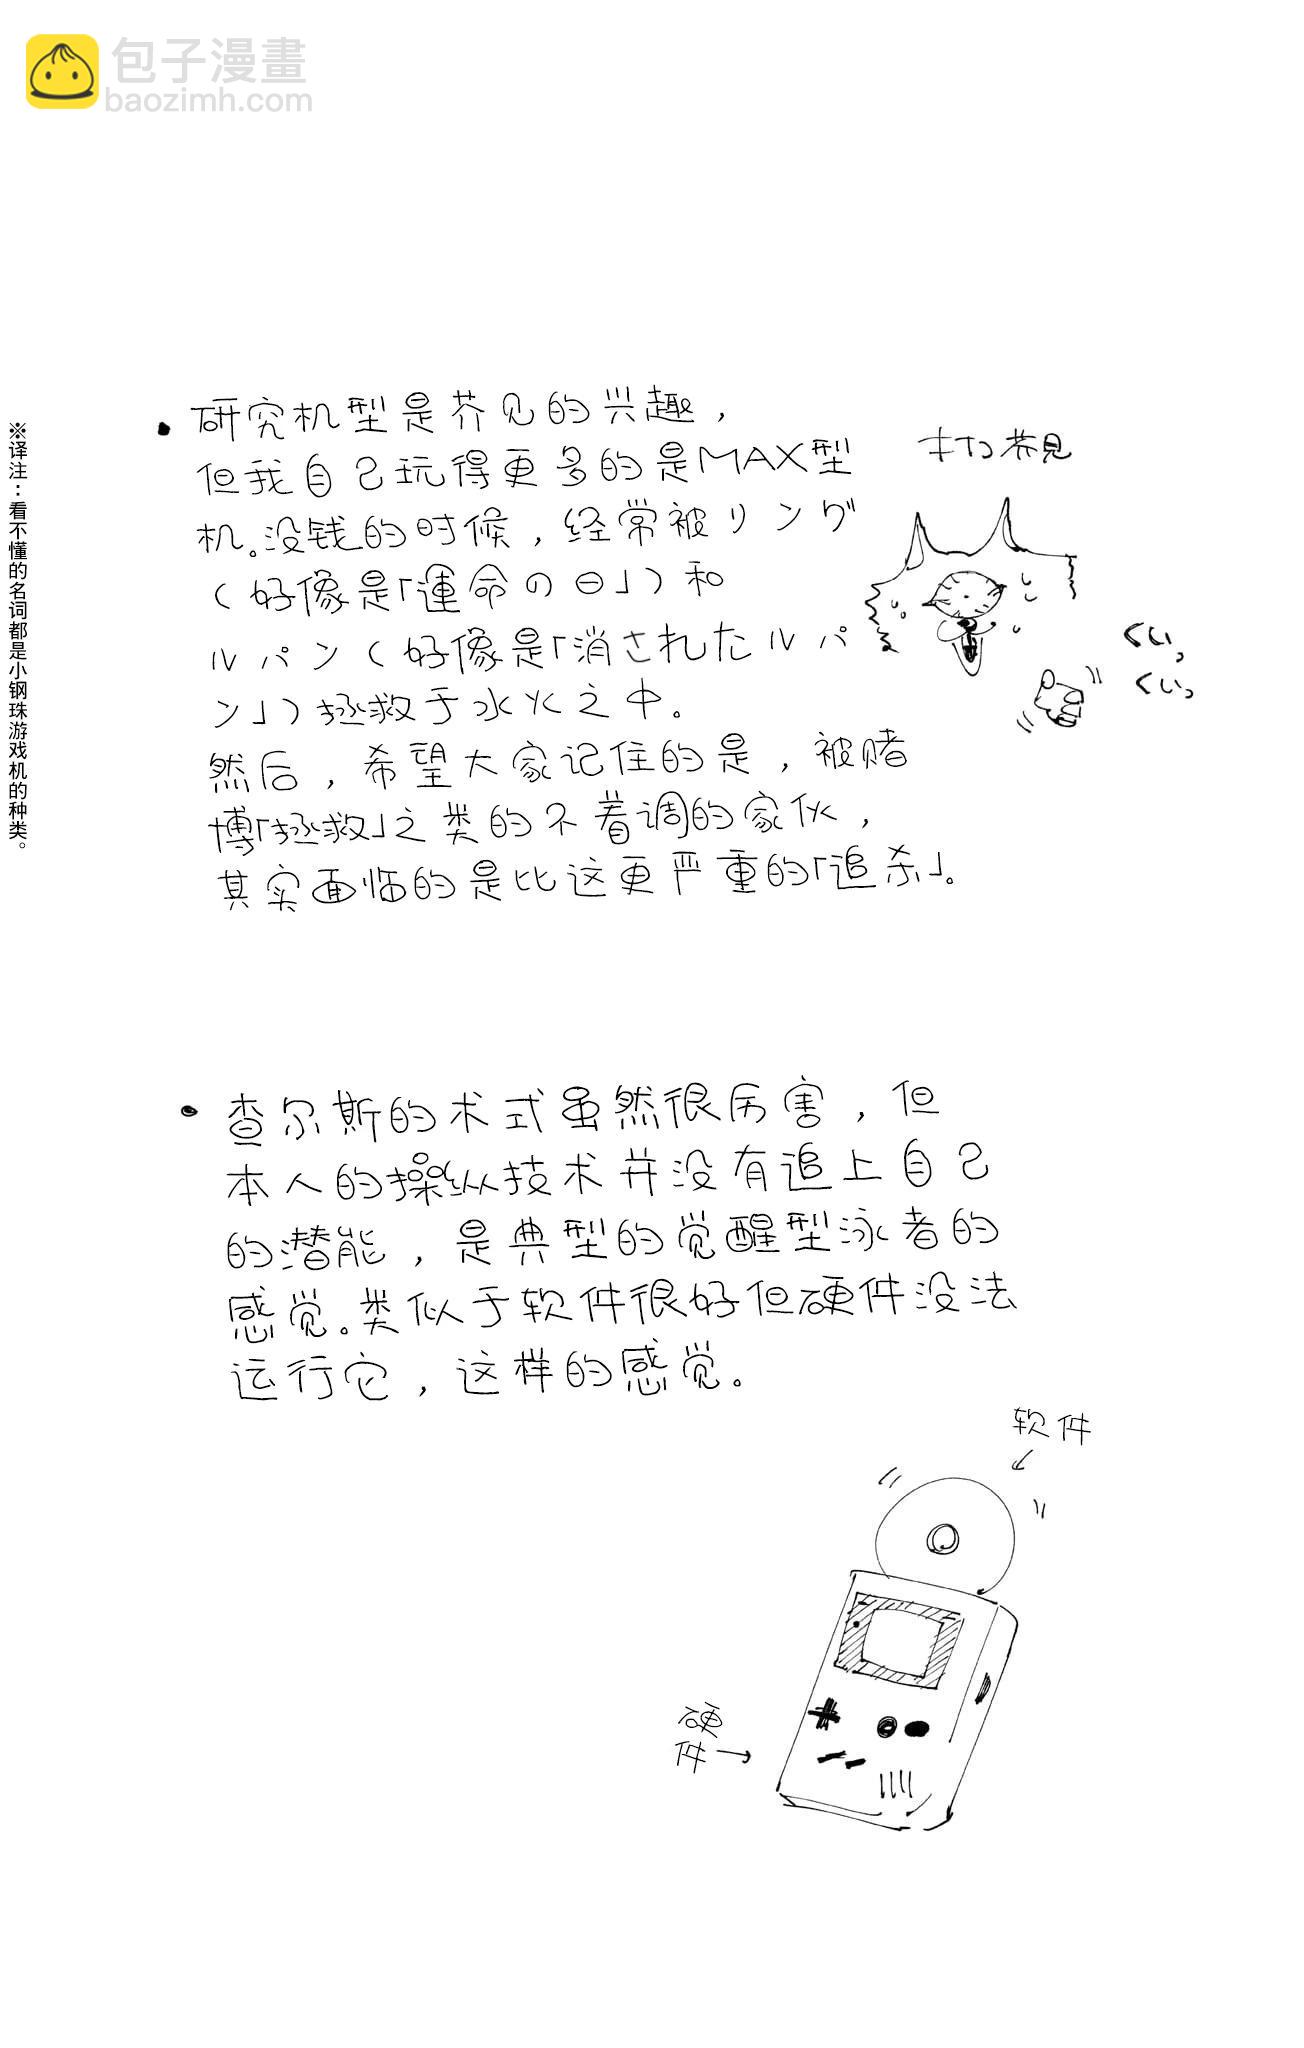 包子漫畫
baozimh.com
※译注：看不懂的名词都是小钢珠游戏机的种类。
研究机型是芥见的兴趣，
但我自己玩得更多的是MAX型
机。没钱的时候，经常被リング
（好像是「運命の日」）和
ルパン（好像是「消されたルパ
ン」）拯救于水火之中。
然后，希望大家记住的是，被赌
博「拯救」之类的不着调的家伙，
其实面临的是比这更严重的「追杀」。
芥见
くいっ
くいっ
查尔斯的术式虽然很厉害，但
本人的操纵技术并没有追上自己
的潜能，是典型的觉醒型泳者的
感觉。类似于软件很好但硬件没法
运行它，这样的感觉。
软件
硬
件